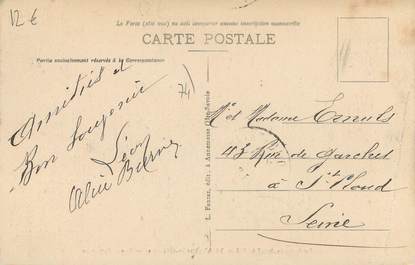 12 €
Le Facteur (côté vue) ne doit comporter aucune inscription manuscrite
CARTE POSTALE
Partie exclusivement réservée à la Correspondance
74)
Amitiés et
Bon Souvenir
Léon
Alice
Mr et Madame
43 Rue de Garches
à St Cloud
Seine
édit. à Annemasse (Hte-Savoie)